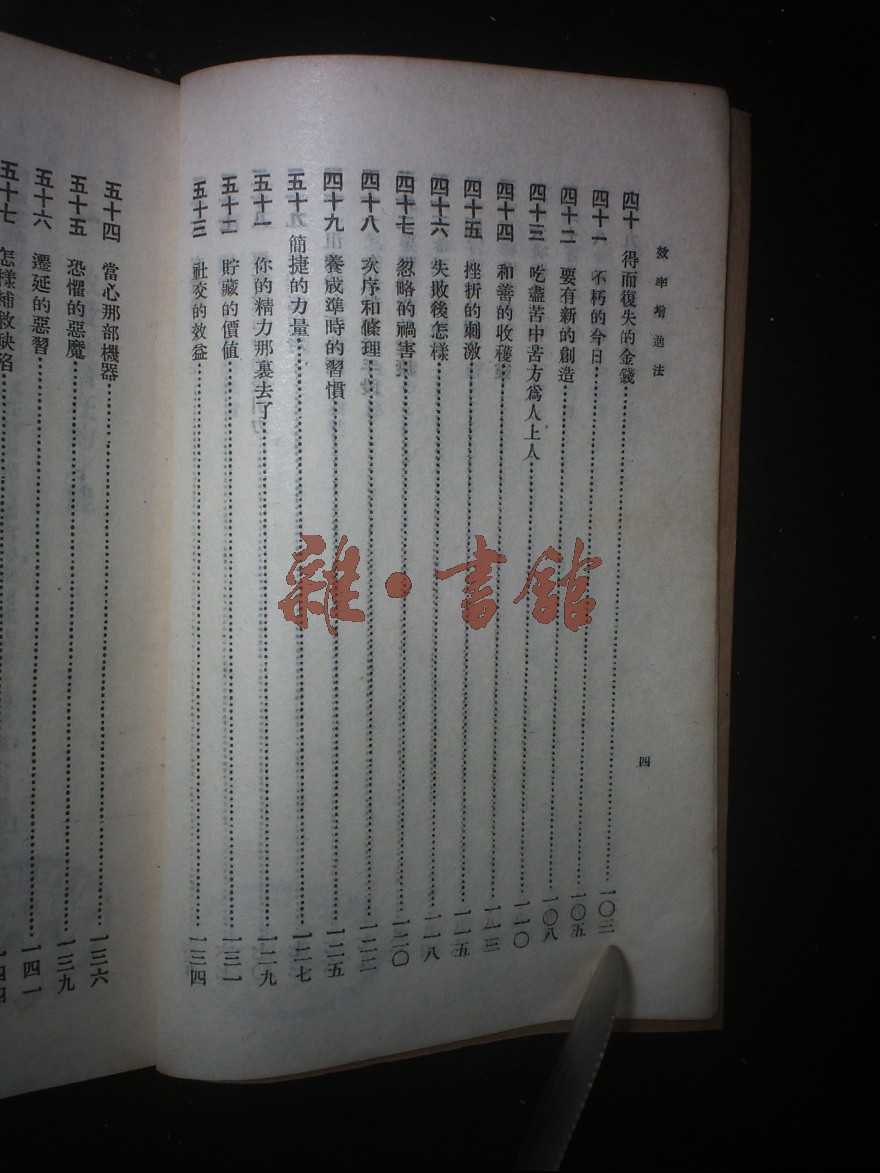 效率增進法
四
四十 得而復失的金錢 一〇三
四十一 不朽的今日 一〇五
四十二 要有新的創造 一〇八
四十三 吃盡苦中苦方爲人上人 一一〇
四十四 和善的收穫 一一三
四十五 挫折的刺激 一一五
四十六 失敗後怎樣 一一八
四十七 忽略的禍害 一二〇
四十八 次序和條理 一二二
四十九 養成準時的習慣 一二五
五十 簡捷的力量 一二七
五十一 你的精力那裏去了 一二九
五十二 貯藏的價值 一三一
五十三 社交的效益 一三四
五十四 當心那部機器 一三六
五十五 恐懼的惡魔 一三九
五十六 遷延的惡習 一四一
五十七 怎樣補救缺陷 一四四
雜·書館